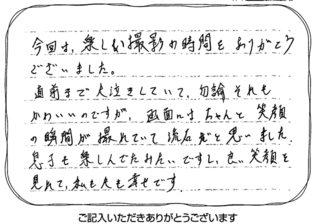 今回は、楽しい撮影の時間をありがとう
ございました。
直前まで大泣きしていて、勿論それも
かわいいのですが、画面にはちゃんと笑顔
の瞬間が撮れていて流石だと思いました。
息子も楽しんでたみたいですし、良い笑顔を
見れて、私も夫も幸せです。
ご記入いただきありがとうございます